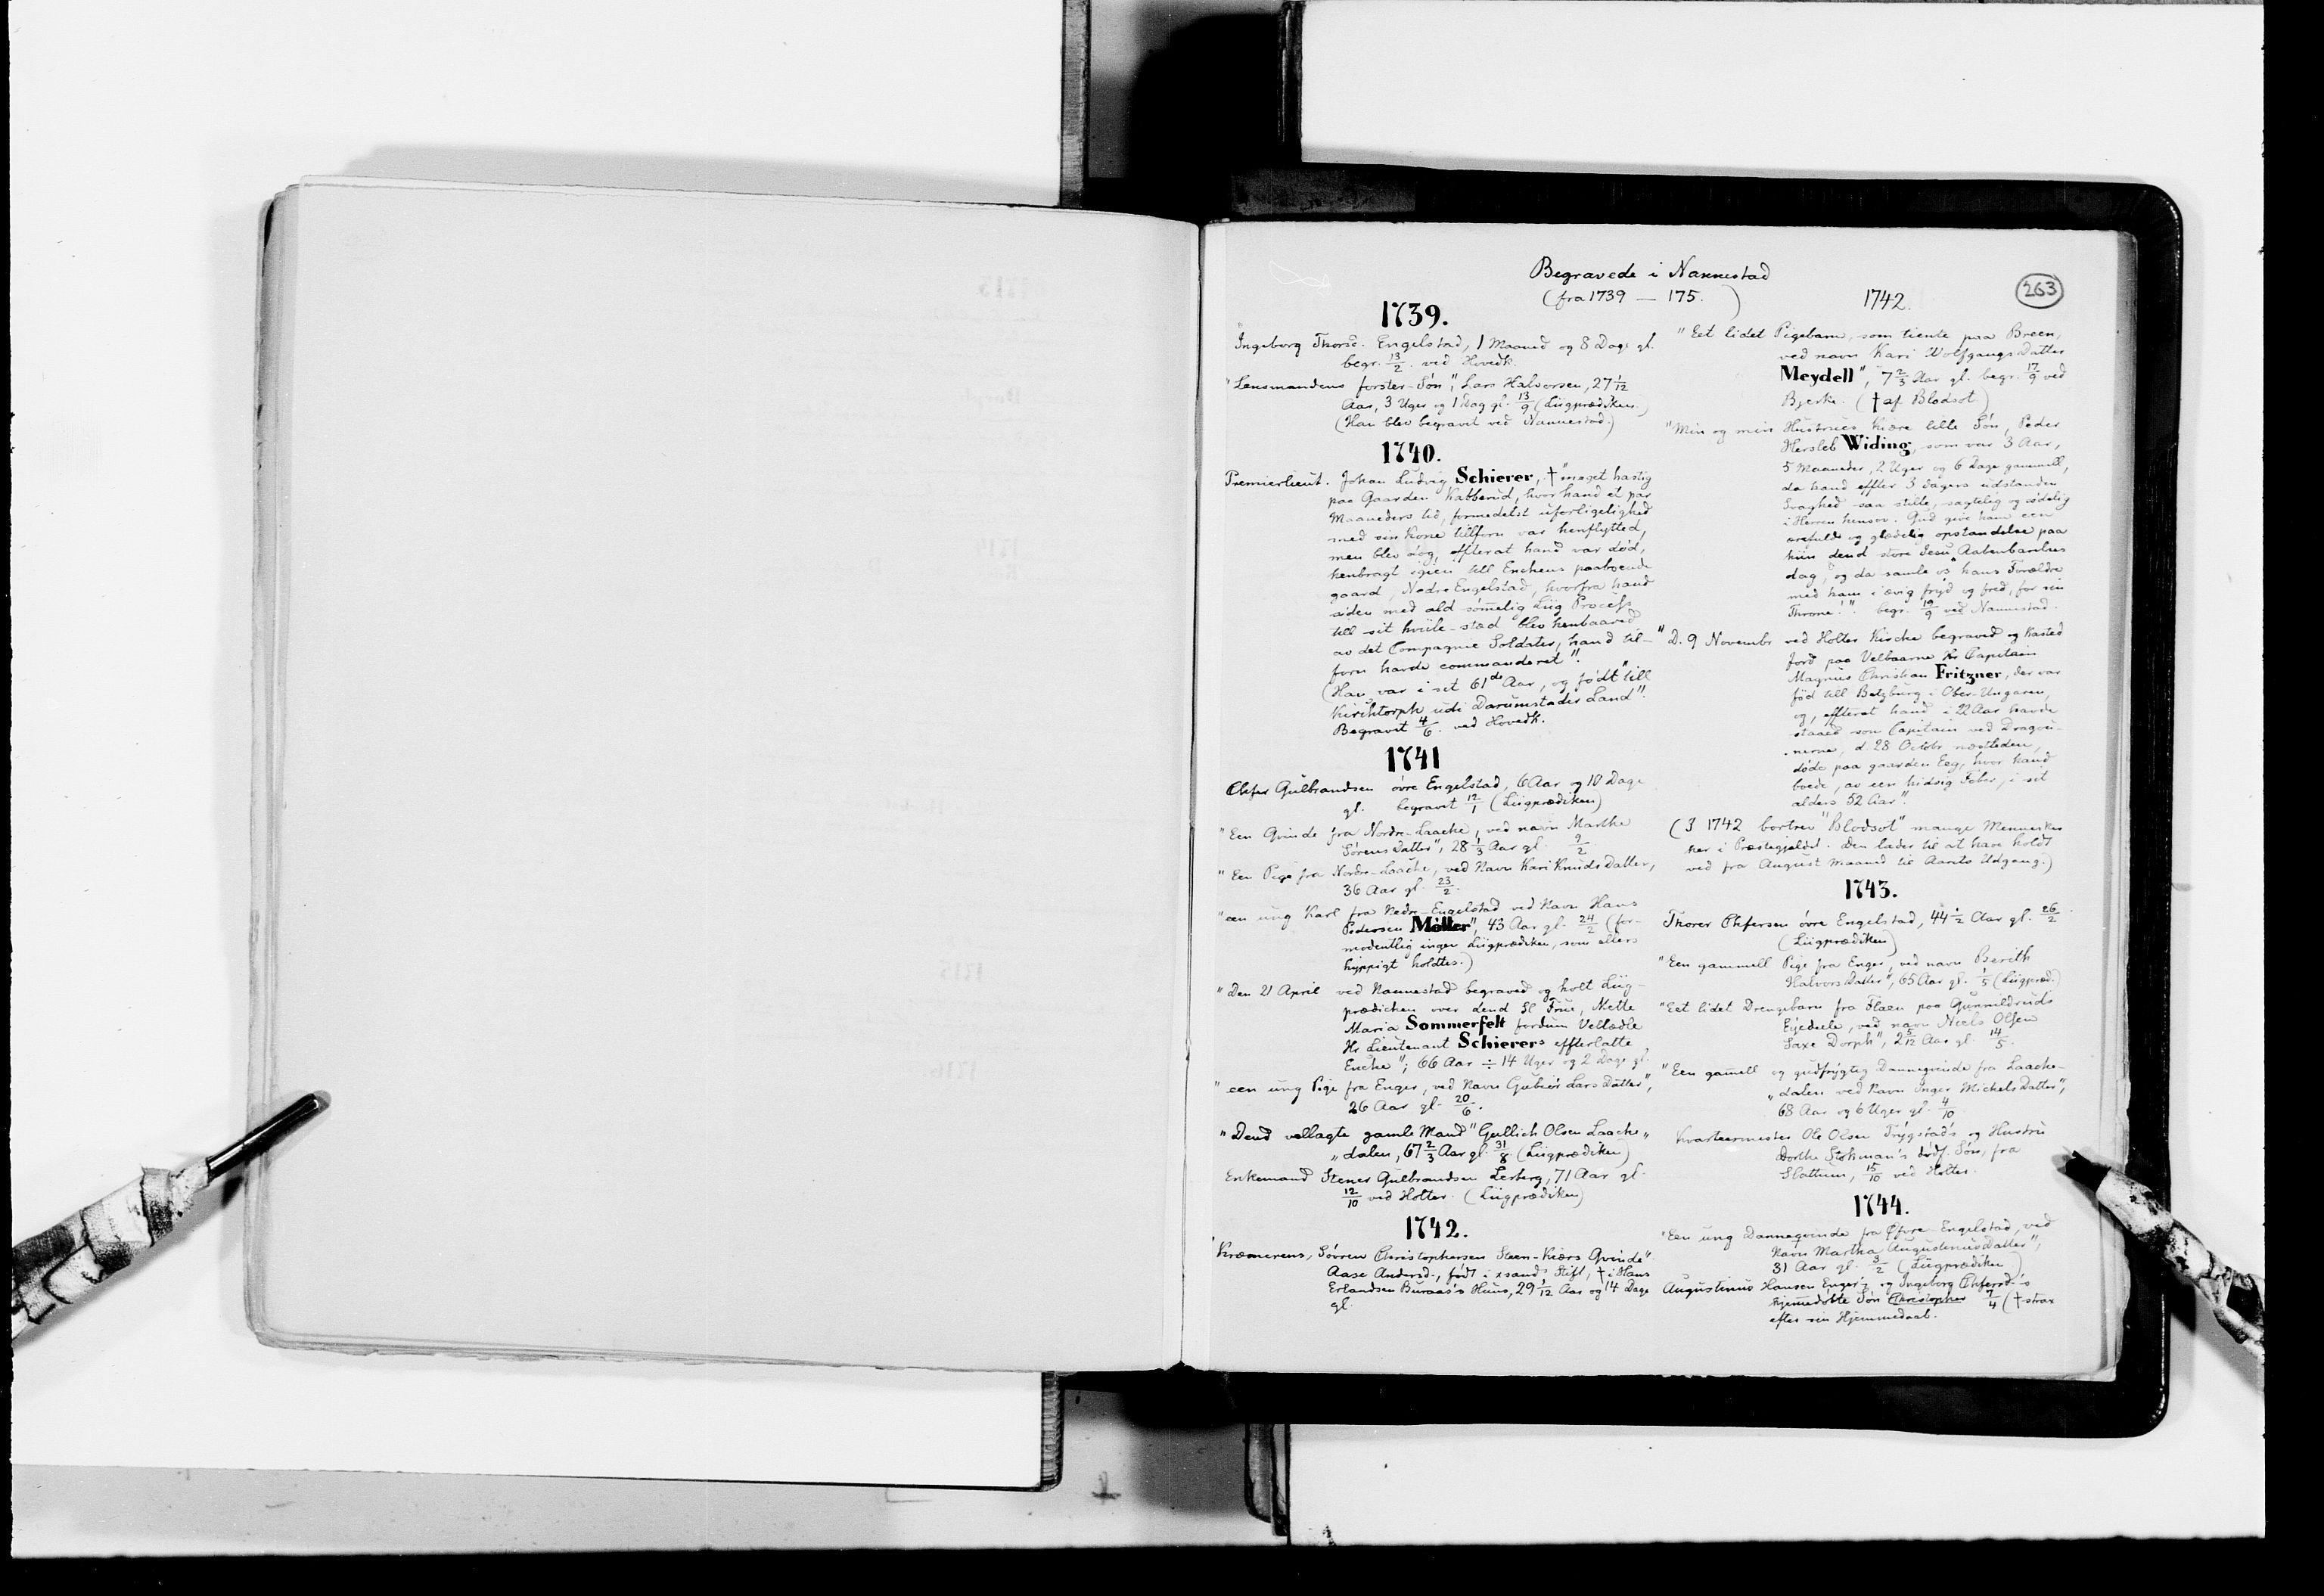 Begravede i Nannestad
(fra 1739 — 175. )
263
1739.
"Ingeborg Thorsd. Engelstad, 1 Maaned og 8 Dage gl.
begr. 13/2 ved Hovedk.
"Lensmandens forster-Søn", Lars Halvorsen, 27 1/12
Aar, 3 Uger og 1 Dag gl. 13/9 (Liigprædiken.)
(Han blev begravet ved Nannestad.)
1740.
Premierlieut. Johan Ludvig Schierer, † "meget hastig
paa Gaarden Kabberud, hvor hand et par
Maaneders tid, formedelst uforligelighed
med sin Kone tilforn var henflytted,
men blev dog, effterat hand var død,
henbragt igien till Enchens paaboende
gaard, Nedre Engelstad, hvorfra hand
siden med ald sømmelig Liig Process
till sit hviile-sted blev henbaaret
av det Compagnie Soldater, hand til-
forn havde commanderet".
(Han var i sit 61de Aar, og født "till
Kirchtorph udi Darumstadts Land".
Begravet 4/6. ved Hovedk.
1741
Chfer Gulbrandsen øvre Engelstad, 6 Aar og 10 Dage
gl. begravet 12/1 (Liigprædiken)
"Een Qvinde fra Nordre-Laache, ved navn Marthe
Sørens Datter", 28 1/3 Aar gl. 9/2
"Een Pige fra Nordre-Laache, ved Navn Kari Knuds Datter,
36 Aar gl. 23/2.
"een ung Karl fra Nedre-Engelstad ved Navn Hans
Pedersen Møller", 43 Aar gl. 24/2 (for-
modentlig ingen Liigprædiken, som ellers
hyppigt holdtes.)
"Den 21 April ved Nannestad begraved og holt Liig-
prædichen over dend Sl Frue, Mette
Maria Sommerfelt fordum Velædle
Hr Lieutenant Schierers effterlatte
Enche"; 66 Aar ÷ 14 Uger og 2 Dage gl.
"een ung Pige fra Enger, ved Navn Gubiør Lars Datter",
26 Aar gl. 20/6.
"Dend vellagte gamle Mand" Gullich Olsen Laache„
„dalen, 67 2/3 Aar gl. 31/8 (Liigprædiken)
Enkemand Stener Gulbrandsen Lerberg, 71 Aar gl.
12/10 ved Holter. (Liigprædiken)
1742.
"Kræmerens, Søvren Christophersen Steen-Kiærs Qvinde".
Aase Andersd., født i xsands Stift, † i Hans
Erlandsen Buraas's Huus, 29 1/12 Aar og 14 Dage
gl.
1742.
"Eet lidet Pigebarn, som tiente paa Breen,
ved navn Kari Wolfgangs Datter
Meydell", 7 2/3 Aar gl. begr. 17/9 ved
Bjerke. († af Blodsot.)
"Min og min Hustrues kiære lille Søn, Peder
Hersleb Widing, som var 3 Aar,
5 Maaneder, 2 Uger og 6 Dage gammell,
da hand effter 3 dagers udstanden
Svaghed saa stille, sagtelig og sødelig
i Herren hensov. Gud give ham een
ærefuld og glædelig opstandelse paa
hiin dend store Jesu Aabenbarelses
dag, og da samle os hans Forældre
med ham i ævig fryd og fred, for sin
Throne!". begr. 19/9 ved Nannestad.
"D. 9 Novembr ved Holter Kirche begraved og kasted
Jord paa Velbaarne Hr Capitain
Magnus Christian Fritzner, der var
fød till Betzburg i Ober-Ungaren,
og, effterat hand i 22 Aar havde
staaed som Capitain ved Dragou-
nerne, d. 28 Octobr næstleden,
døde paa gaarden Eeg, hvor hand
boede, av een hidsig Feber, i sit
alders 52 Aar".
(I 1742 bortrev "Blodsot" mange Mennesker
her i Præstegjeldet. Den lader til at have holdt
ved fra August Maaned til Aarets Udgang.)
1743.
Thorer Chfersen øvre Engelstad, 44 1/2 Aar gl. 26/2
(Liigprædiken)
"Een gammell Pige fra Enger, ved navn Berith
Halvors Datter", 65 Aar gl. 1/5 (Liigpræd.)
"Eet lidet Drengebarn fra Flaen paa Gunnildruds
Eiedeele, ved navn Niels Olsen
Saxe Dorph", 2 5/12 Aar gl. 14/5.
"Een gamell og gudfrygtig Danneqvinde fra Laache-
„dalen ved Navn Inger Michels Datter",
68 Aar og 6 Uger gl. 4/10.
Kvarteermester Ole Olsen Trygstad's og Hustru
Dorthe Stokman's dødf. Søn, fra
Slattum, 15/10 ved Holter.
1744.
"Een ung Danneqvinde fra Øfvre-Engelstad, ved
Navn Martha Augustinus Datter",
31 Aar gl. 3/2 (Liigprædiken)
Augustinus Hansen Enger's og Ingeborg Chfersd.'s
hjemmedøbte Søn Christopher 7/4 († strax
efter sin Hjemmedaab.